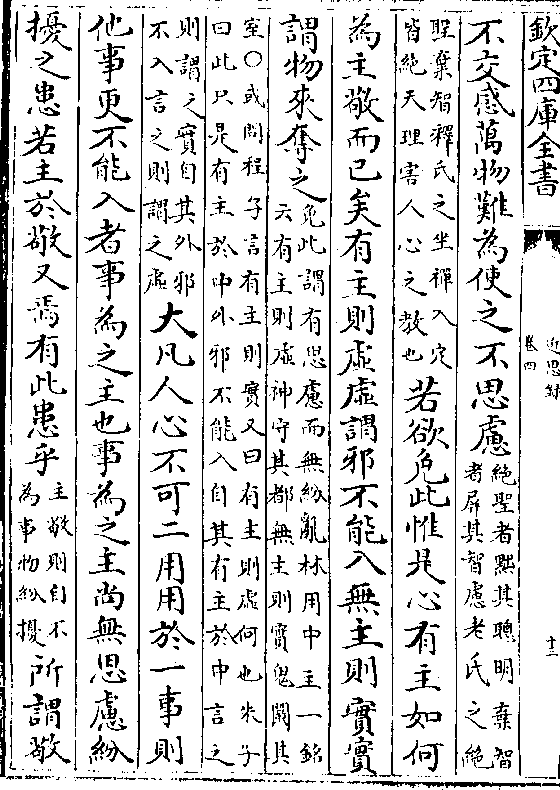 欽定四庫全書
近思録
卷四
十三
不交感萬物難為使之不思慮
絶聖者黜其聰明棄智
者屏其智慮老氏之絶
聖棄智釋氏之坐禪入定
皆絶天理害人心之教也
若欲免此惟是心有主如何
為主敬而已矣有主則虚虚謂邪不能入無主則實實
謂物來奪之
免此謂有思慮而無紛亂林用中主一銘
云有主則虚神守其都無主則實鬼闞其
室○或問程子言有主則實又曰有主則虚何也朱子
曰此只是有主於中外邪不能入自其有主於中言之
則謂之實自其外邪
不入言之則謂之虚
大凡人心不可二用用於一事則
他事更不能入者事為之主也事為之主尚無思慮紛
擾之患若主於敬又焉有此患乎
主敬則自不
為事物紛擾
所謂敬